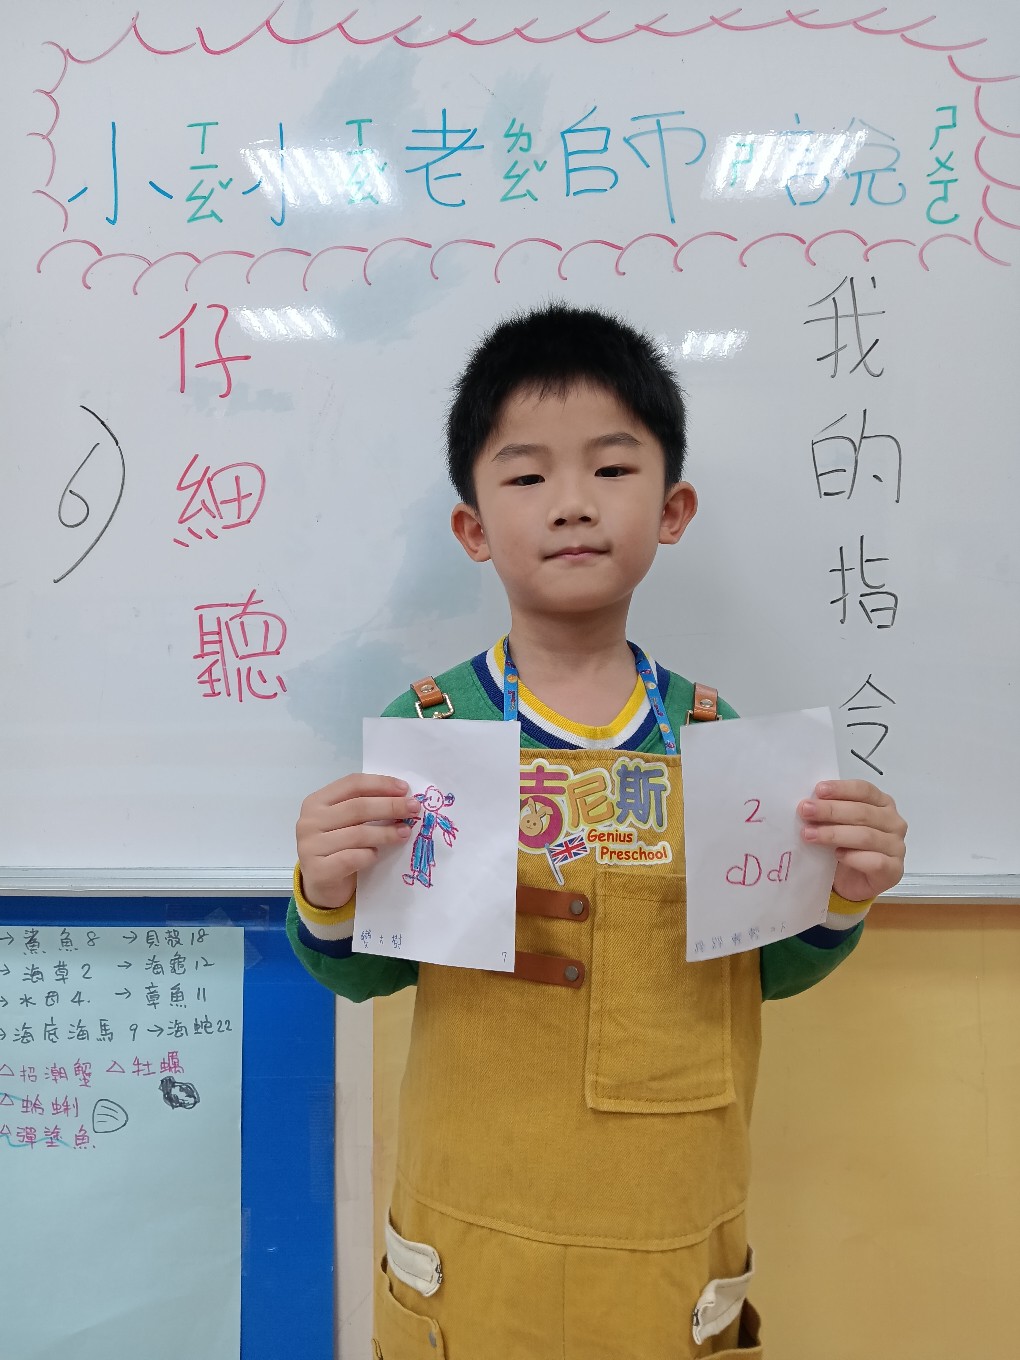 小ㄒㄧㄠˇ小ㄒㄧㄠˇ老ㄌㄠˇ師ㄕ說ㄕㄨㄛ
仔細聽
我的指令
6)
吉尼斯
Genius
Preschool
變大樹
7
2
→鯊魚8 →貝殼18
→海草2 →海龜12
→水母4. →章魚11
→海底海馬9 →海蛇22
△招潮蟹 △牡蠣
△蛤蜊
彈塗魚